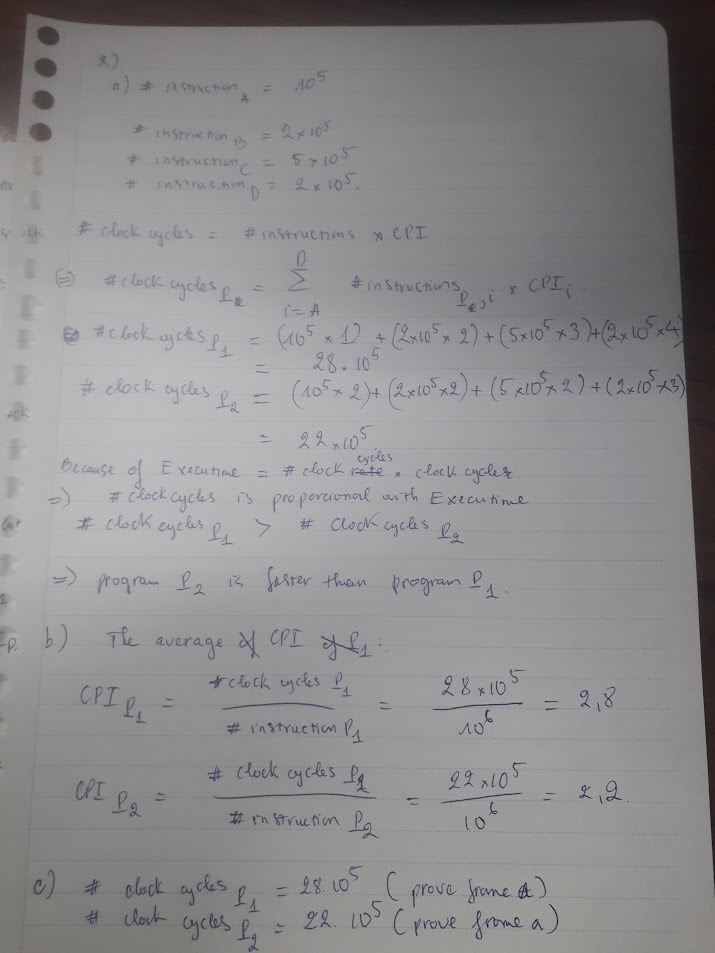 2)
a) # instruction_A = 10^5
# instruction_B = 2×10^5
# instruction_C = 5×10^5
# instruction_D = 2×10^5.
# clock cycles = # instructions × CPI
(=) # clock cycles_P = D Σ i=A # instructions_P,i × CPI_i.
# clock cycles_P1 = (10^5 × 1) + (2×10^5 × 2) + (5×10^5 × 3) + (2×10^5 × 4)
= 28.10^5
# clock cycles P2 = (10^5 × 2) + (2×10^5 × 2) + (5×10^5 × 2) + (2×10^5 × 3)
= 22×10^5
Because of Executime = # clock cycles × clock cycles.
=) # clock cycles is proporcional with Executime
# clock cycles P1 > # clock cycles P2
=) program P2 is faster than program P1.
b) The average CPI :
CPI P1 = # clock cycles P1 / # instruction P1 = 28×10^5 / 10^6 = 2,8
CPI P2 = # clock cycles P2 / # instruction P2 = 22×10^5 / 10^6 = 2,2.
c) # clock cycles P1 = 28.10^5 (prove frame a)
# clock cycles P2 = 22.10^5 (prove frame a)